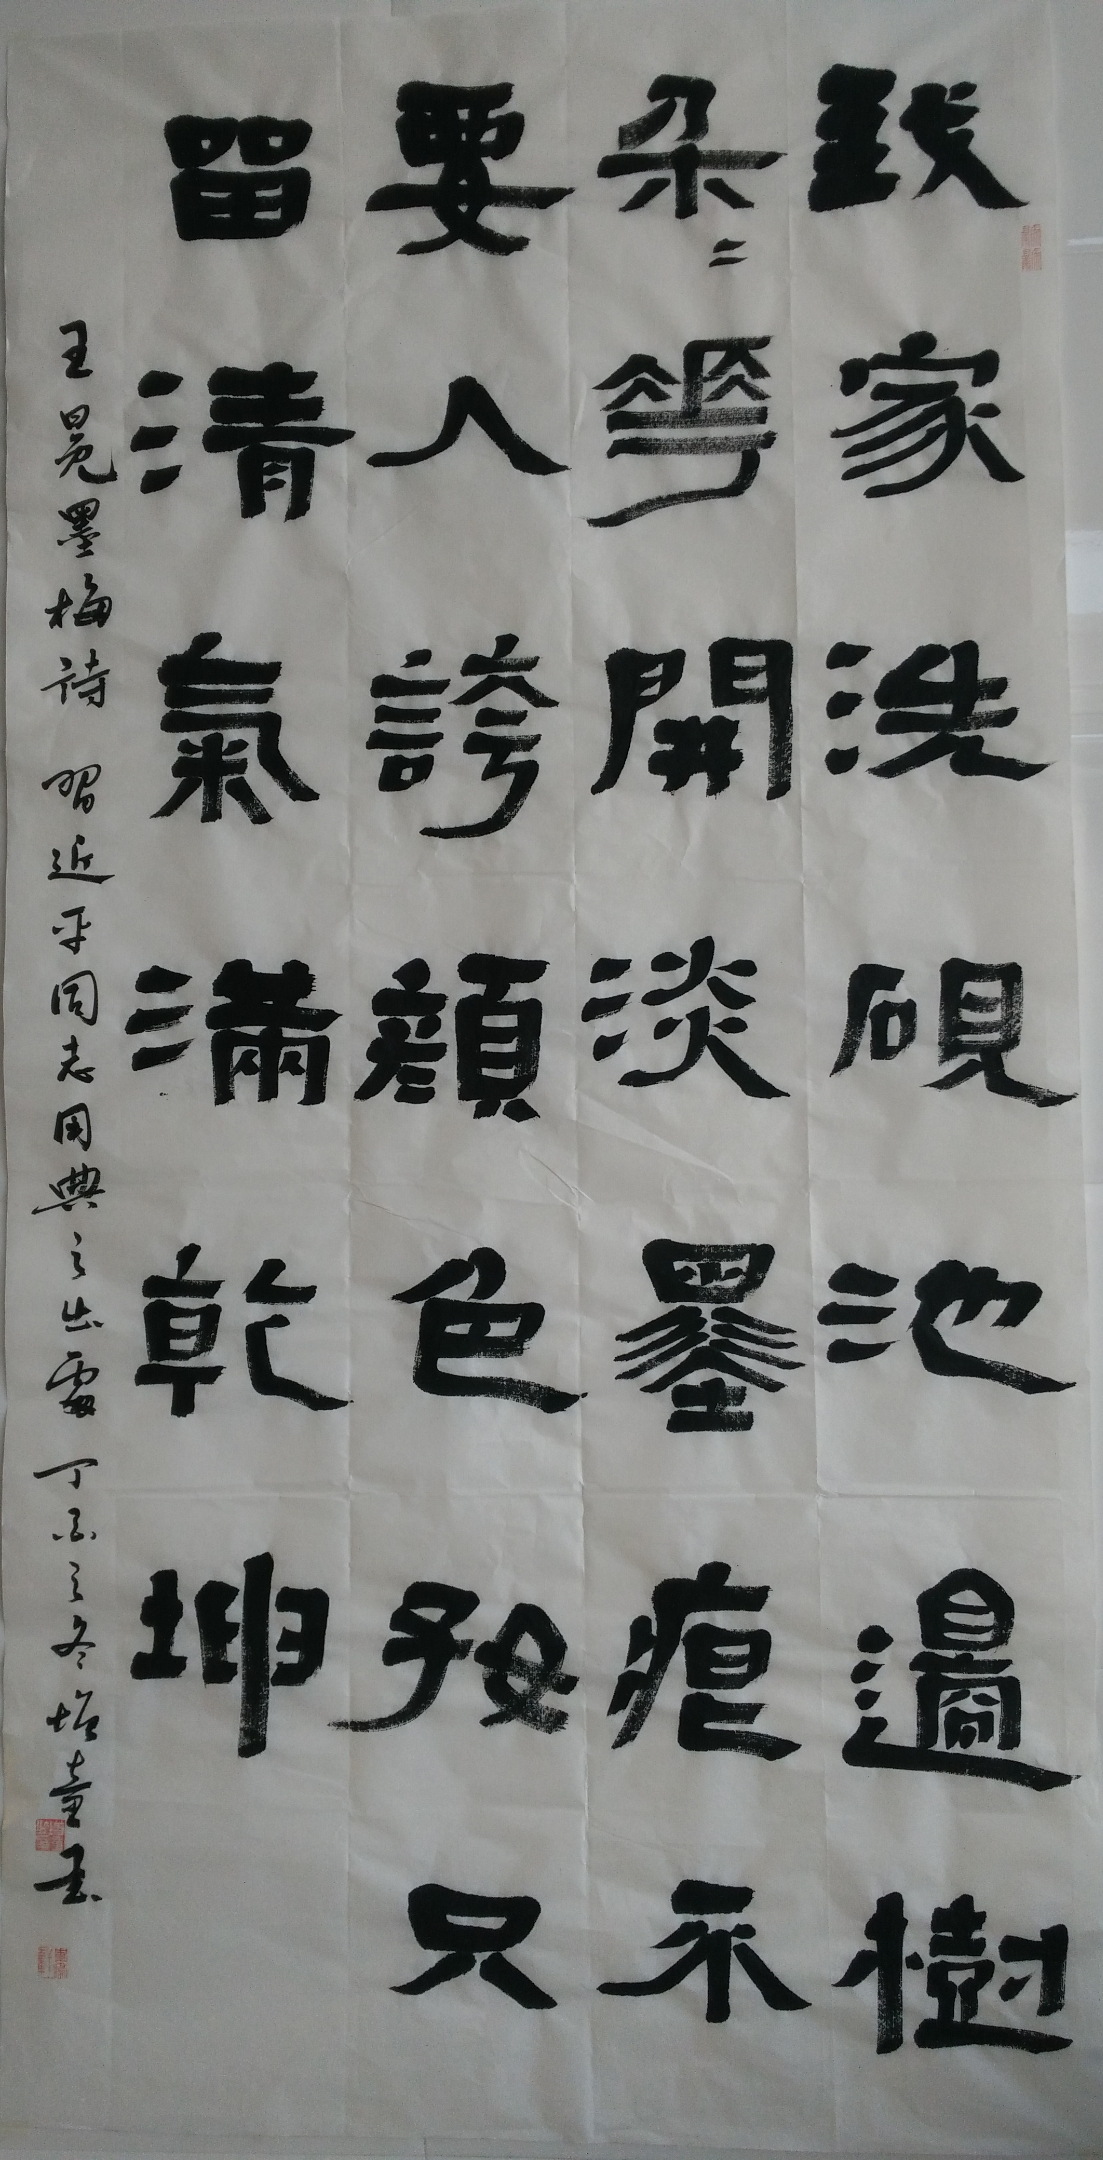 我家洗硯池邊樹
朵〻華開淡墨痕不
要人誇顏色好只
留清氣滿乾坤
王冕墨梅詩 習近平同志用典之出處 丁酉之冬增童书